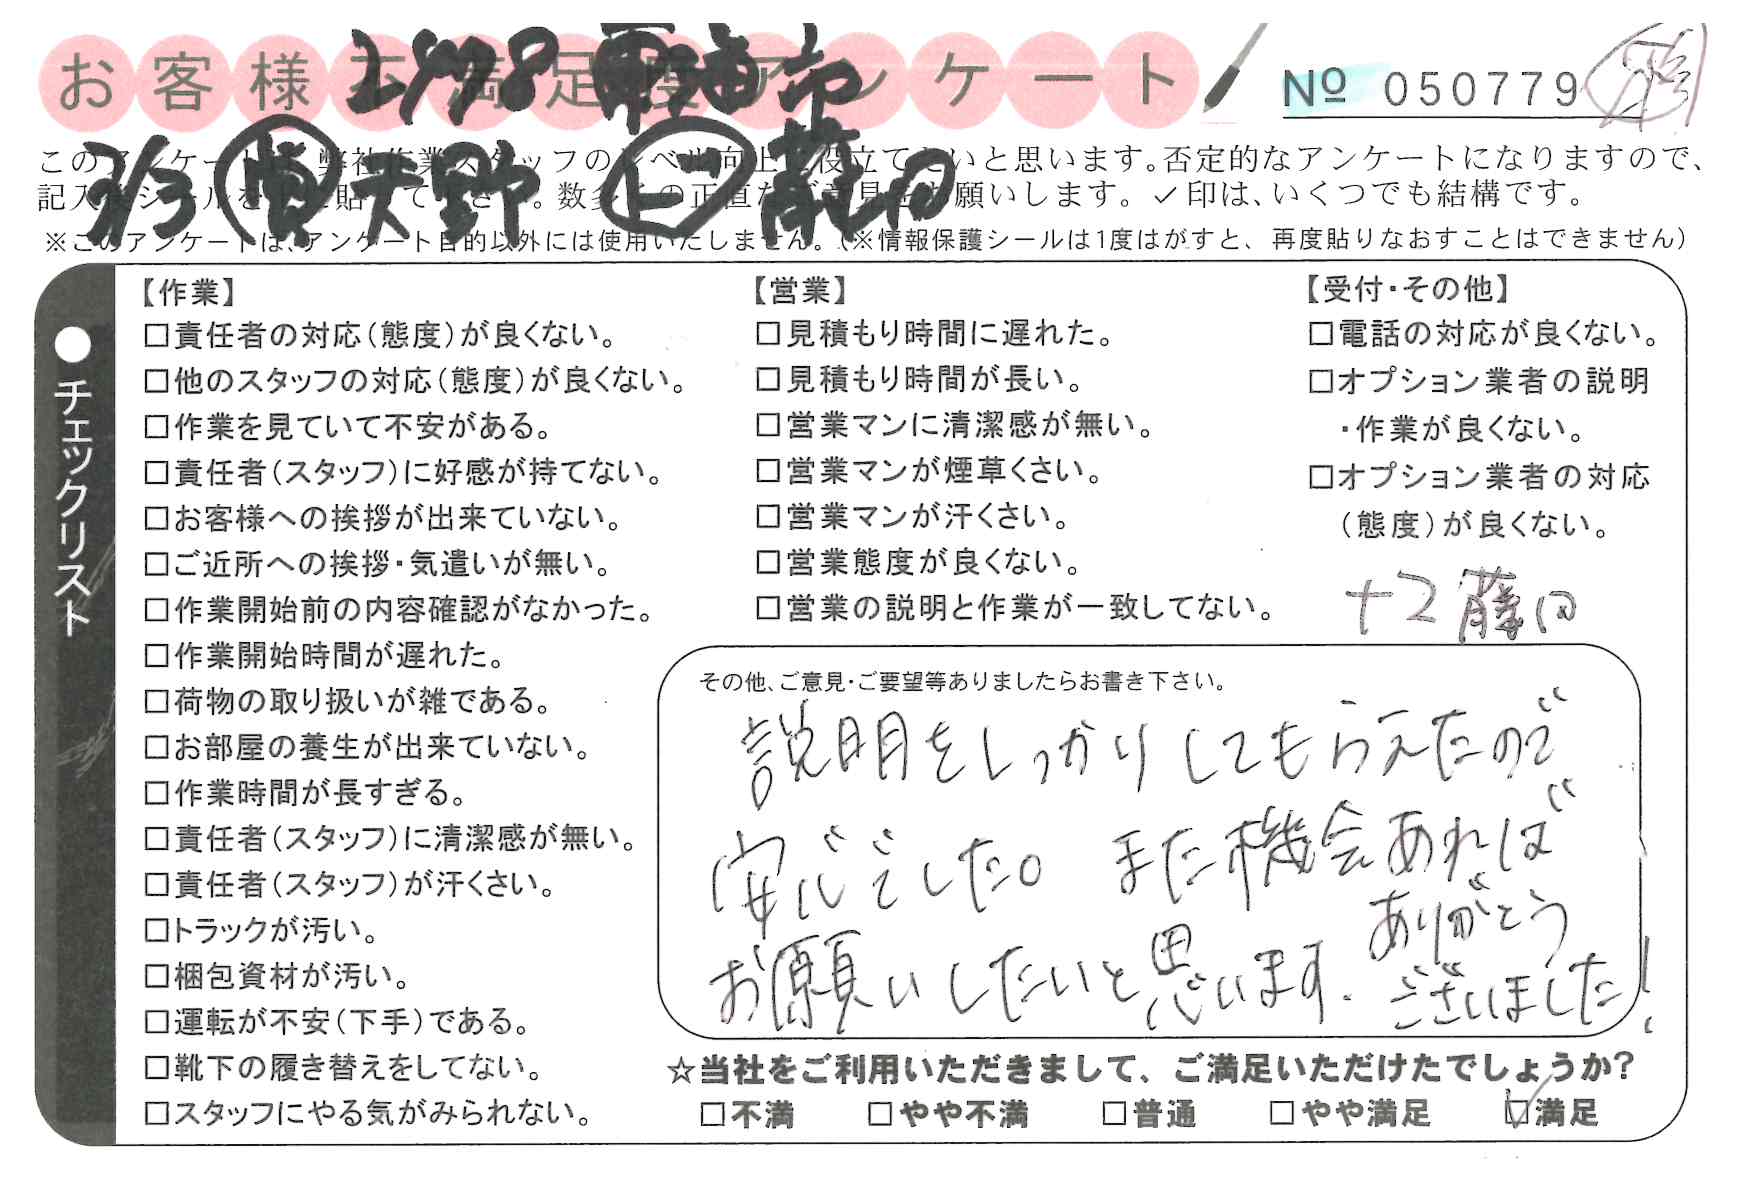 お客様不満足度アンケート
№ 050779
2/3 責 天野
このアンケートは、弊社作業スタッフのレベル向上に役立てたいと思います。否定的なアンケートになりますので、
記入後シールを上に貼って下さい。数多くの正直なご意見をお願いします。✓印は、いくつでも結構です。
※このアンケートは、アンケート目的以外には使用いたしません。(※情報保護シールは1度はがすと、再度貼りなおすことはできません)
●チェックリスト
【作業】
□責任者の対応(態度)が良くない。
□他のスタッフの対応(態度)が良くない。
□作業を見ていて不安がある。
□責任者(スタッフ)に好感が持てない。
□お客様への挨拶が出来ていない。
□ご近所への挨拶・気遣いが無い。
□作業開始前の内容確認がなかった。
□作業開始時間が遅れた。
□荷物の取り扱いが雑である。
□お部屋の養生が出来ていない。
□作業時間が長すぎる。
□責任者(スタッフ)に清潔感が無い。
□責任者(スタッフ)が汗くさい。
□トラックが汚い。
□梱包資材が汚い。
□運転が不安(下手)である。
□靴下の履き替えをしてない。
□スタッフにやる気がみられない。
【営業】
□見積もり時間に遅れた。
□見積もり時間が長い。
□営業マンに清潔感が無い。
□営業マンが煙草くさい。
□営業マンが汗くさい。
□営業態度が良くない。
□営業の説明と作業が一致してない。
【受付・その他】
□電話の対応が良くない。
□オプション業者の説明
・作業が良くない。
□オプション業者の対応
(態度)が良くない。
+2 藤田
その他、ご意見・ご要望等ありましたらお書き下さい。
説明をしっかりしてもらえたので
安心でした。また機会あれば
お願いしたいと思います.
ありがとう
ございました!
☆当社をご利用いただきまして、ご満足いただけたでしょうか?
□不満 □やや不満 □普通 □やや満足 ☑満足